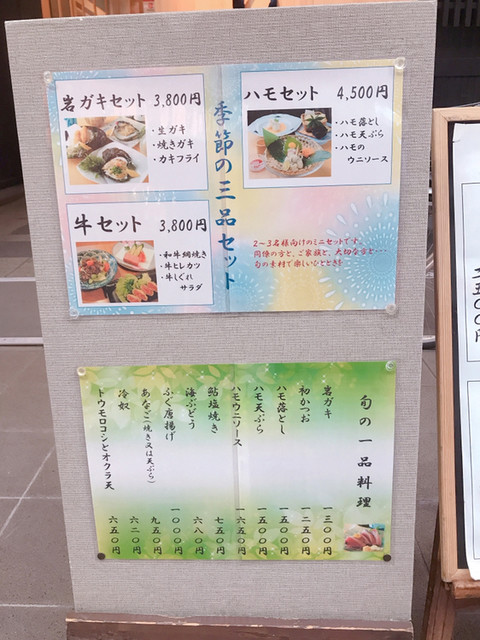 季節の三品セット
岩ガキセット 3,800円
・生ガキ
・焼きガキ
・カキフライ
ハモセット 4,500円
・ハモ落とし
・ハモ天ぷら
・ハモの
ウニソース
牛セット 3,800円
・和牛網焼き
・牛ヒレカツ
・牛しぐれ
サラダ
2~3名様向けのミニセットです。
同僚の方と、ご家族と、大切な方と…
旬の素材で楽しいひととき!
旬の一品料理
岩ガキ 一三〇〇円
初かつお 一二五〇円
ハモ落とし 一五〇〇円
ハモ天ぷら 一五〇〇円
ハモウニソース 一六五〇円
鮎塩焼き 七五〇円
海ぶどう 六八〇円
ふぐ唐揚げ 一〇〇〇円
あなご(焼き又は天ぷら) 九五〇円
冷奴 六二〇円
トウモロコシとオクラ天 六五〇円
五〇〇円